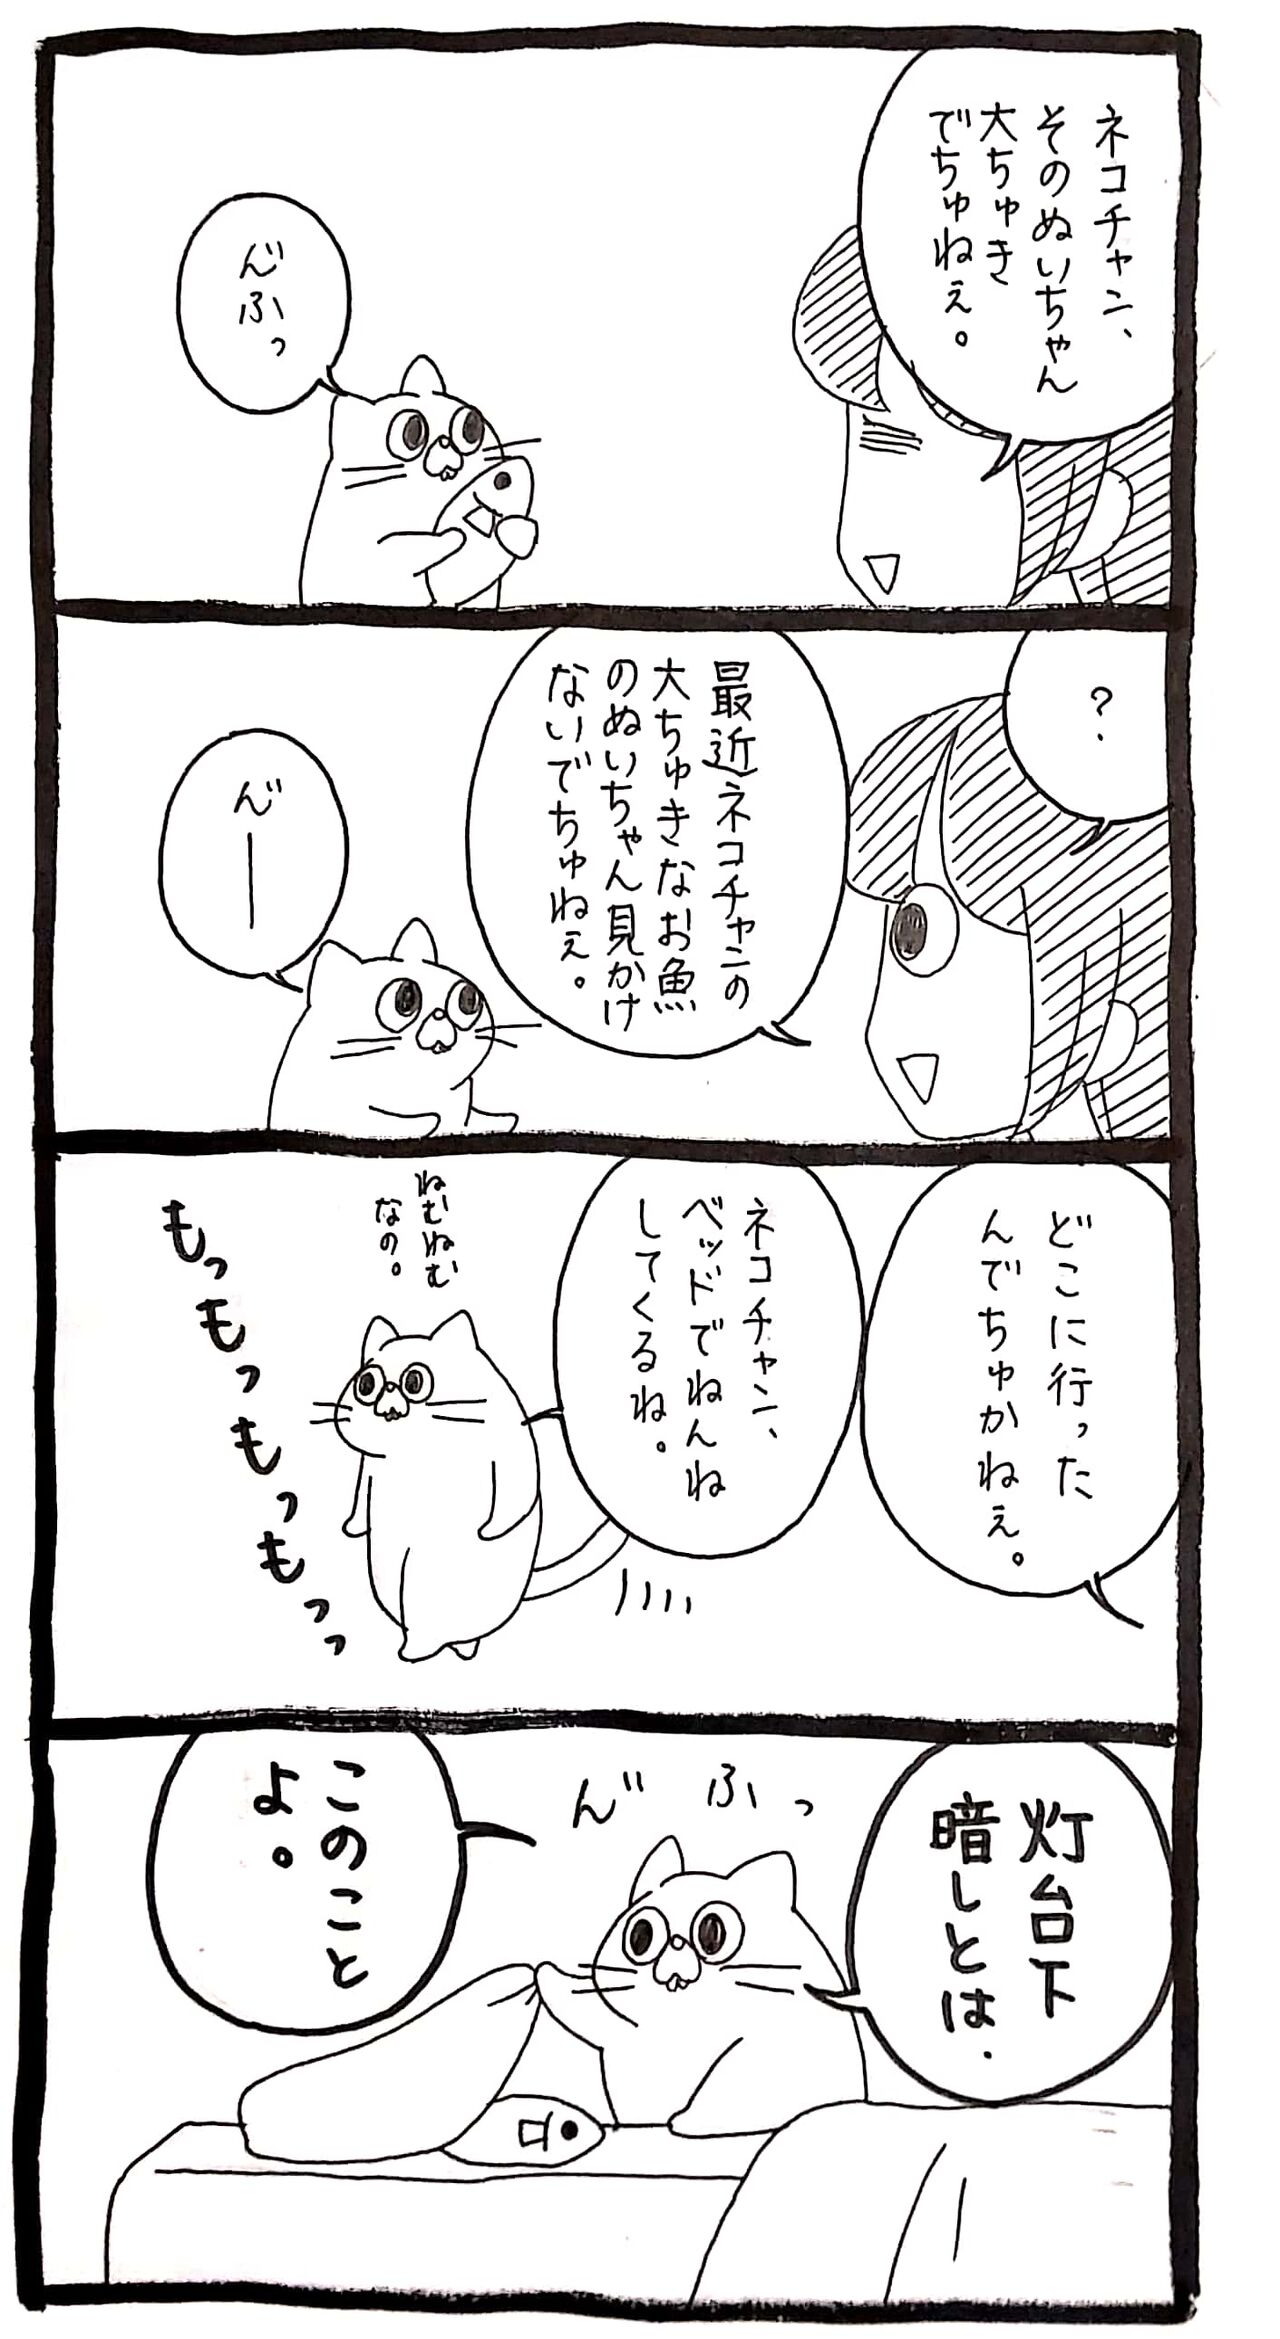 ネコチャン、
そのぬいちゃん
大ちゅき
でちゅねぇ。
ん゛ふっ
？
最近ネコチャンの
大ちゅきなお魚
のぬいちゃん見かけ
ないでちゅねぇ。
ん゛ー
どこに行った
んでちゅかねぇ。
ネコチャン、
ベッドでねんね
してくるね。
ねむねむ
なの。
もっもっもっもっっ
灯台下
暗しとは.
ん゛ふっ
このこと
よ。